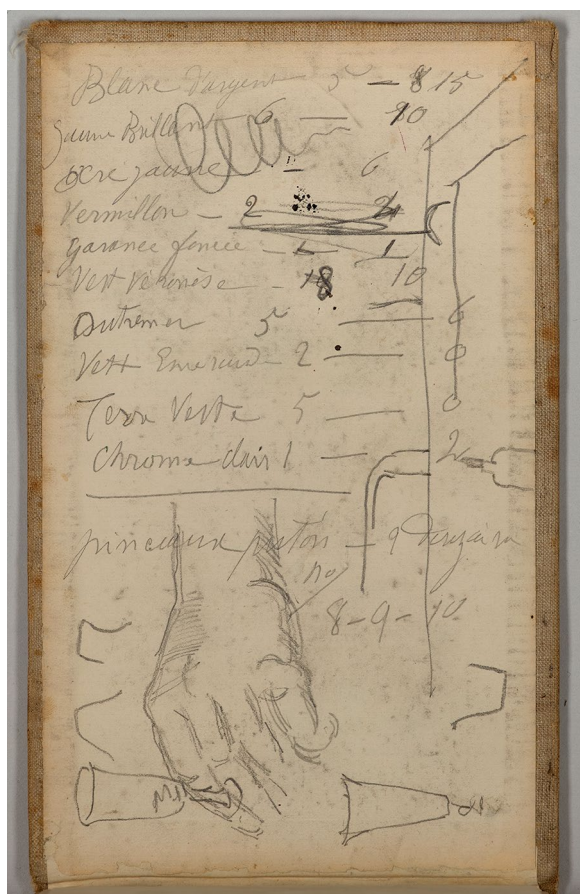 Blanc d'argent 5 — 8 15
Jaune Brillant 6 — 10
Ocre jaune 1 — 6
Vermillon — 2
Garance foncée — 1 1
Vert Véronèse — 18 10
Outremer 5 — 6
Vert Emeraude 2 — 0
Terre Verte 5 — 0
Chrome clair 1 — 2
pinceaux — 9
no
8 - 9 - 10